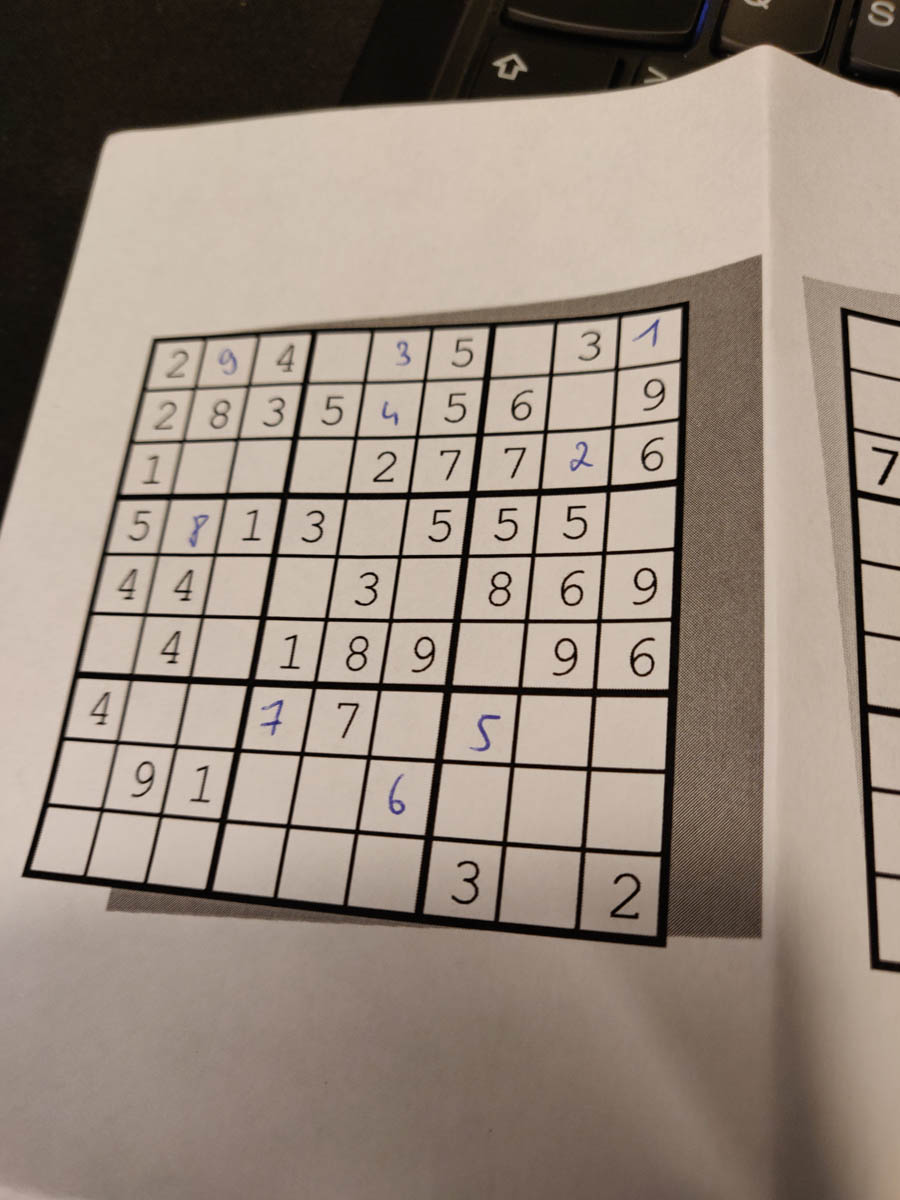 Q S
>
2 9 4 3 5 3 1
2 8 3 5 4 5 6 9
1 2 7 7 2 6
5 8 1 3 5 5 5
4 4 3 8 6 9
4 1 8 9 9 6
4 7 7 5
9 1 6
3 2
7